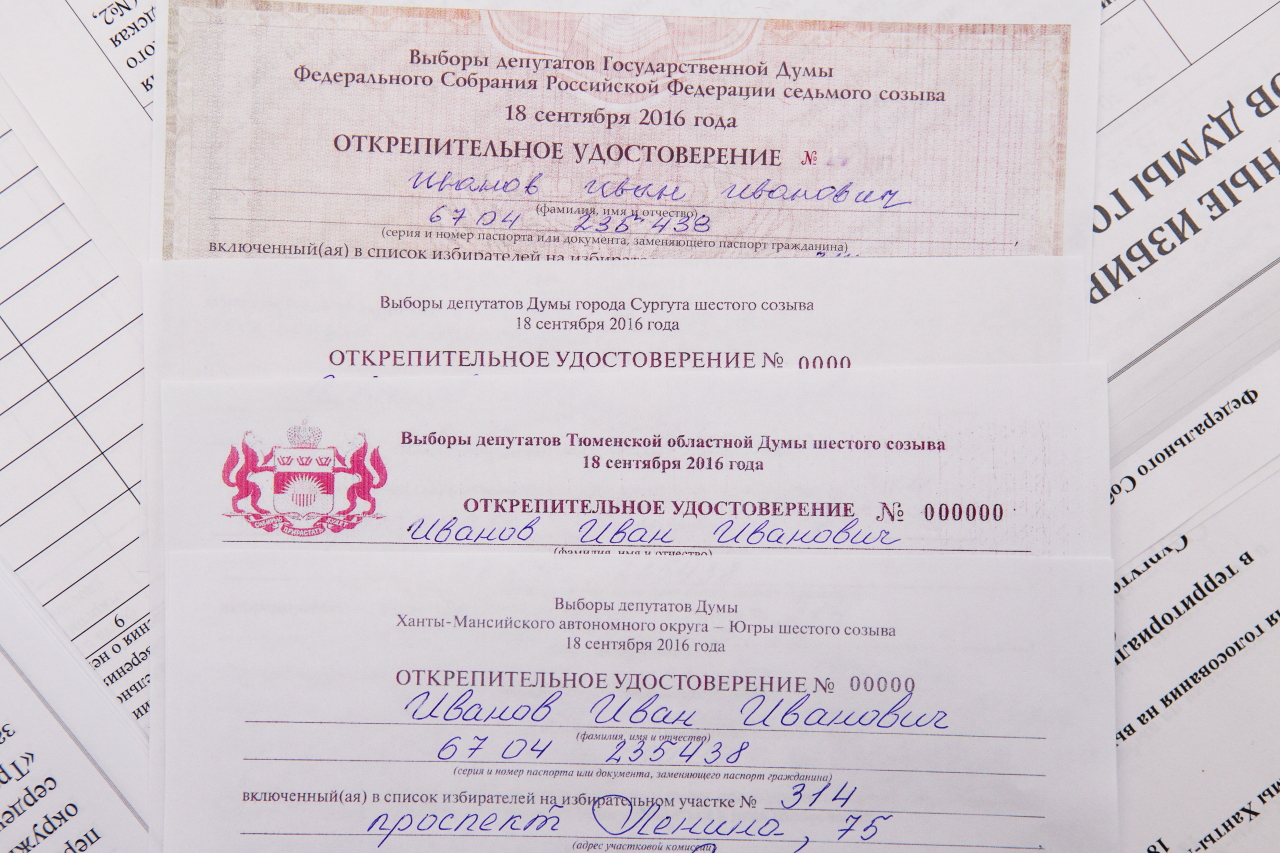 Выборы депутатов Государственной Думы
Федерального Собрания Российской Федерации седьмого созыва
18 сентября 2016 года
ОТКРЕПИТЕЛЬНОЕ УДОСТОВЕРЕНИЕ №
Иванов Иван Иванович
(фамилия, имя и отчество)
67 04 235 438
(серия и номер паспорта или документа, заменяющего паспорт гражданина)
включенный(ая) в список избирателей на
Выборы депутатов Думы города Сургута шестого созыва
18 сентября 2016 года
ОТКРЕПИТЕЛЬНОЕ УДОСТОВЕРЕНИЕ № 0000
Выборы депутатов Тюменской областной Думы шестого созыва
18 сентября 2016 года
ОТКРЕПИТЕЛЬНОЕ УДОСТОВЕРЕНИЕ № 000000
Иванов Иван Иванович
(фамилия, имя и отчество)
Выборы депутатов Думы
Ханты-Мансийского автономного округа – Югры шестого созыва
18 сентября 2016 года
ОТКРЕПИТЕЛЬНОЕ УДОСТОВЕРЕНИЕ № 00000
Иванов Иван Иванович
(фамилия, имя и отчество)
67 04 235438
(серия и номер паспорта или документа, заменяющего паспорт гражданина)
включенный(ая) в список избирателей на избирательном участке № 314
проспект Ленина, 75
(адрес участковой комиссии)
ОВ ДУМЫ ГО
НЫЕ ИЗБИР
Федерального Соб
Сургуто
в территориаль
я голосования на вы
мы Ханты-
18